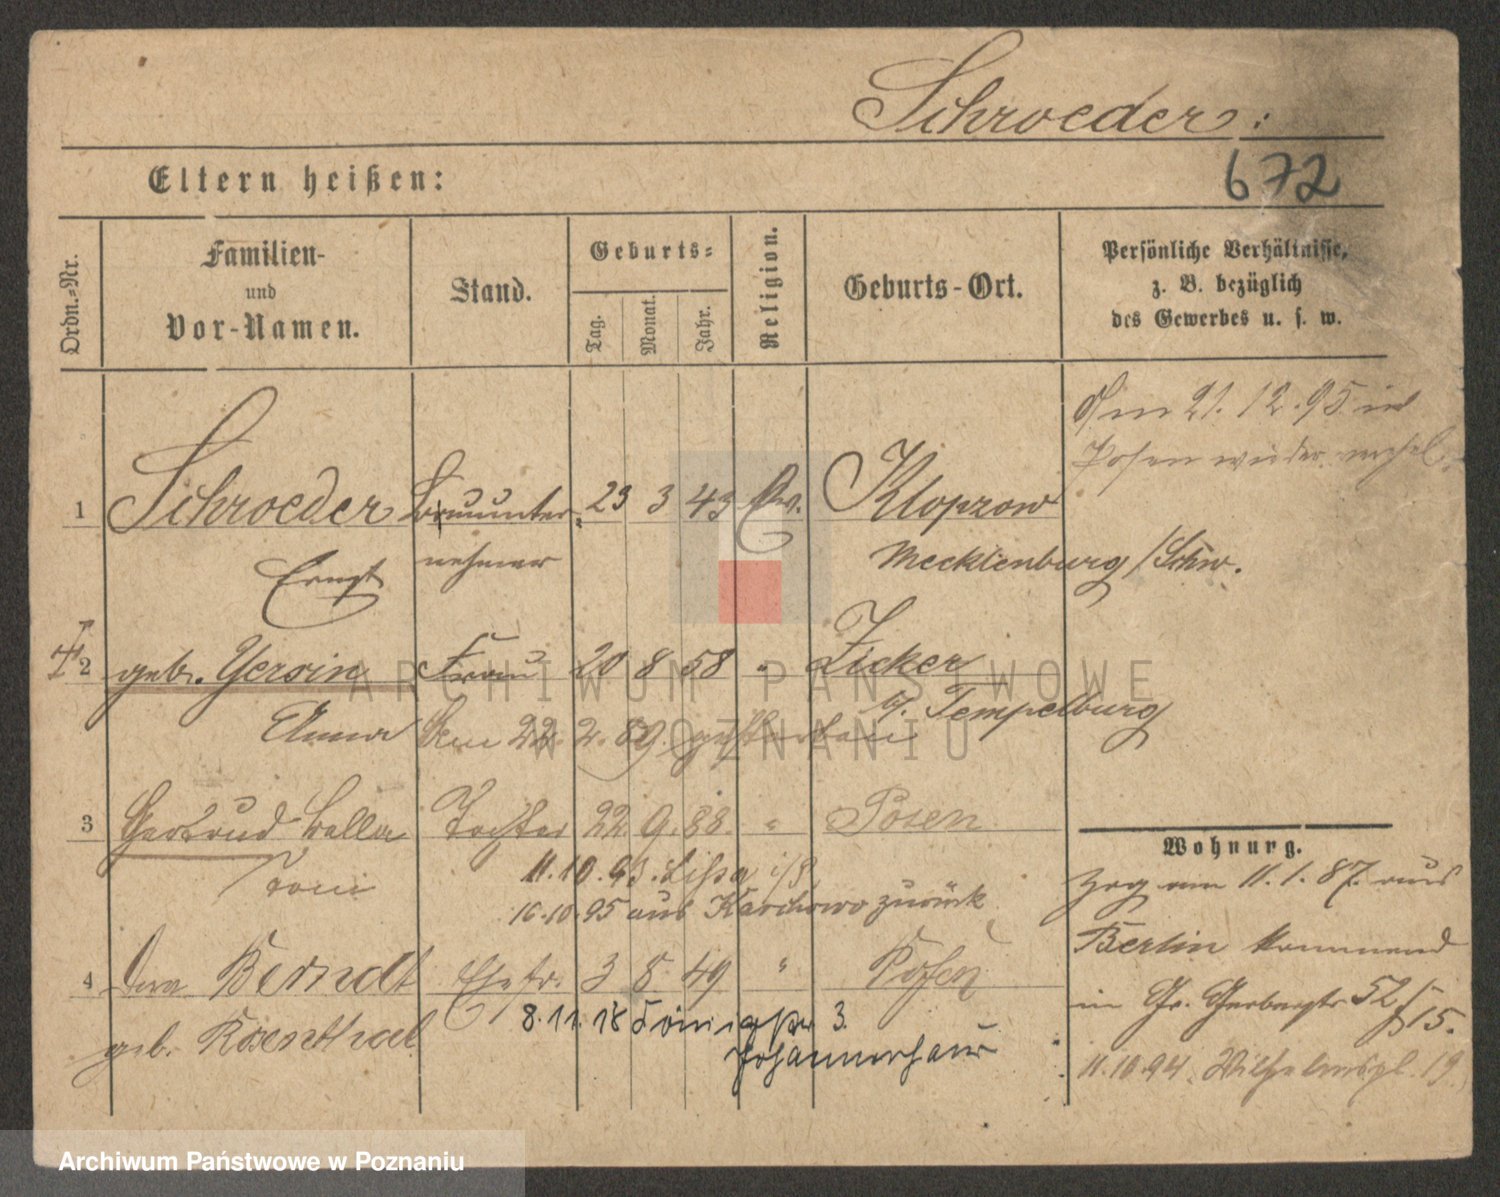 Schroeder:
672
Eltern heißen:
Ordn.-Nr.
Familien-
und
Vor-Namen.
Stand.
Geburts-
Tag.
Monat.
Jahr.
Religion.
Geburts-Ort.
Persönliche Verhältnisse,
z. B. bezüglich
des Gewerbes u. s. w.
den 21.12.95 in
Posen wieder
1 Schroeder Bauunter- 23 3 43 Ev. Klopzow
Ernst nehmer Mecklenburg/Schw.
2 geb. Gersin Frau 20 8 58 " Zicker
Anna Den 22. 2. 89. gestorben Tempelburg
3 Gertrud Bella Tochter 22 9. 88. " Posen
Toni
11.10.93. Lissa i/P.
16.10.95 aus Karchowo zurück
4 Berndt Ehefr. 3 8 49 " Posen
geb. Rosenthal
8.11.18 Königstr 3.
Johannenhaus
Wohnung.
Zog am 11.1.87. aus
Berlin kommend
in Gr. Gerberstr 52
15.
11.10.94 Wilhelmspl. 19
ARCHIWUM PAŃSTWOWE
W POZNANIU
Archiwum Państwowe w Poznaniu